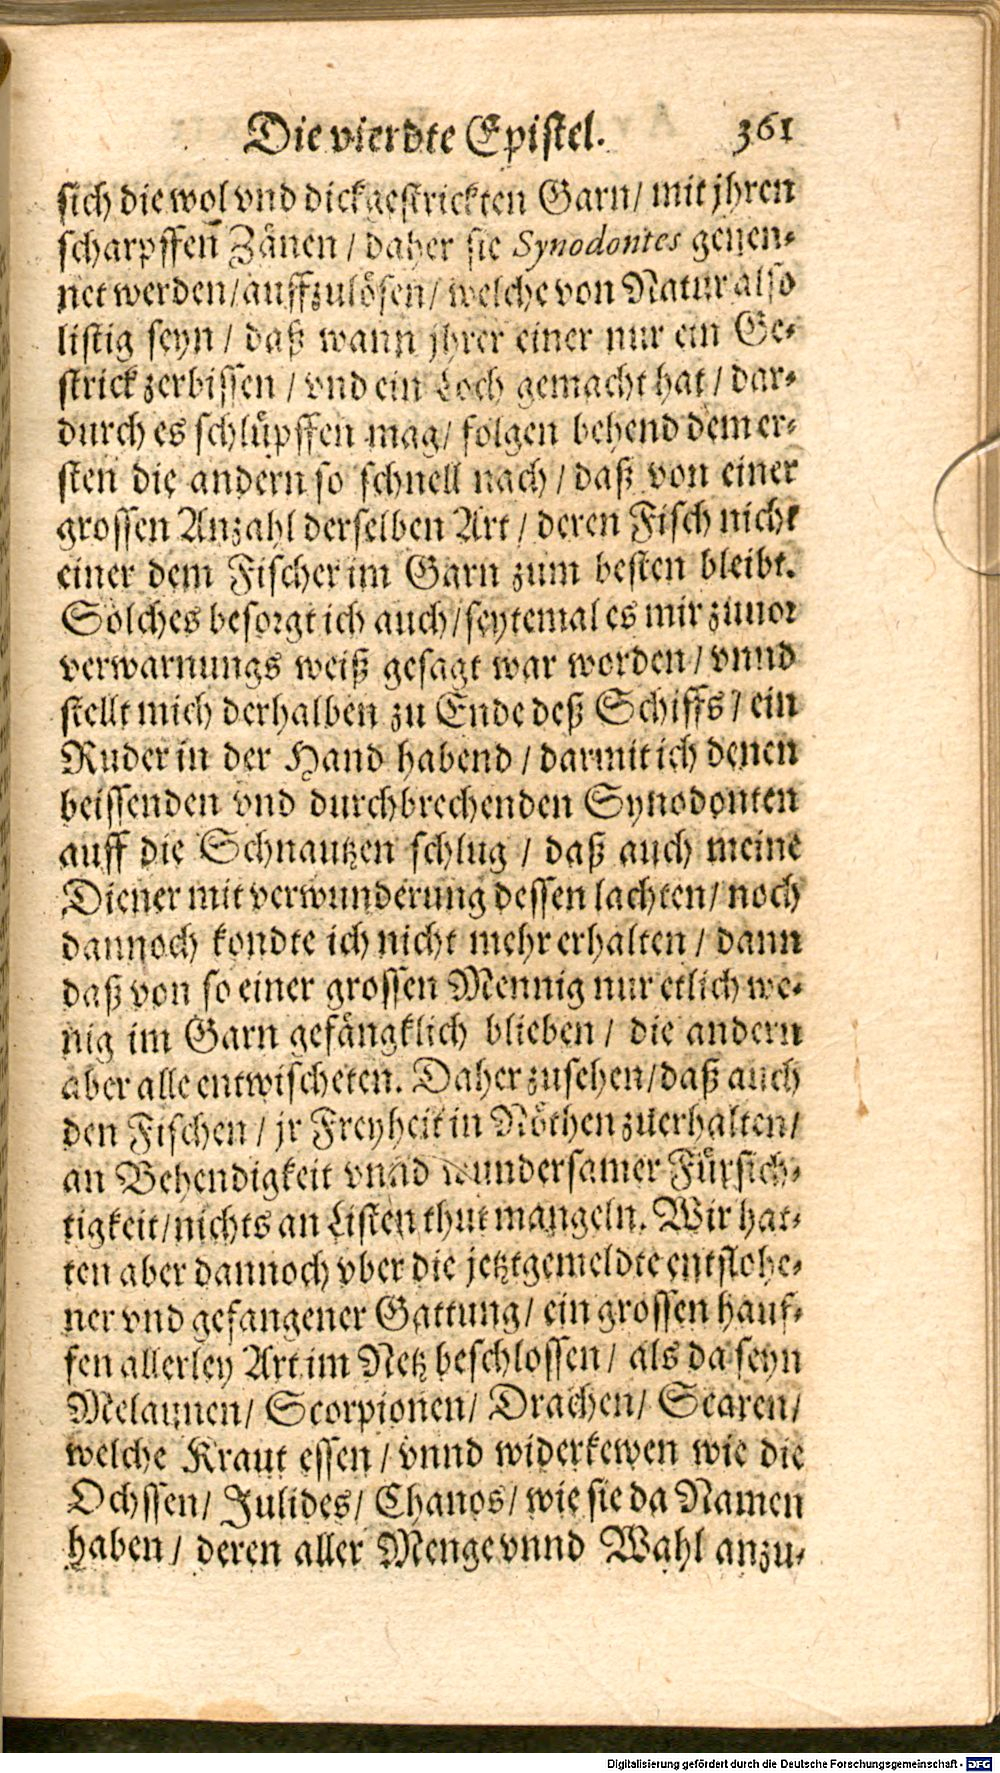 Die vierdte Epistel. 361
sich die wol vnd dickgestrickten Garn/ mit jhren
scharpffen̄ Zänen / daher sie Synodontes genen-
net werden/auffzulösen/ welche von Natur also
listig seyn / daß wann jhrer einer nur ein Ge-
strick zerbissen / vnd ein Loch gemacht hat / dar-
durch es schlüpffen mag/ folgen behend dem er-
sten die andern so schnell nach / daß von einer
grossen Anzahl derselben Art / deren Fisch nicht
einer dem Fischer im Garn zum besten bleibt.
Solches besorgt ich auch/seytemal es mir zuuor
verwarnungs weiß gesagt war worden / vnnd
stellt mich derhalben zu Ende deß Schiffs / ein
Ruder in der Hand habend / darmit ich denen
beissenden vnd durchbrechenden Synodonten
auff die Schnautzen schlug / daß auch meine
Diener mit verwunderung dessen lachten/ noch
dannoch kondte ich nicht mehr erhalten / dann
daß von so einer grossen Mennig nur etlich we-
nig im Garn gefängklich blieben / die andern
aber alle entwischeten. Daher zusehen/daß auch
den Fischen / jr Freyheit in Nöthen zuerhalten/
an Behendigkeit vnnd wundersamer Fürsich-
tigkeit/nichts an Listen thut mangeln. Wir hat-
ten aber dannoch vber die jetztgemeldte entflohe-
ner vnd gefangener Gattung/ ein grossen hauf-
fen allerley Art im Netz beschlossen / als da seyn
Melaunen/ Scorpionen/ Drachen/ Scaren/
welche Kraut essen / vnnd widerkewen wie die
Ochssen/ Julides/ Chanos/ wie sie da Namen
haben / deren aller Menge vnnd Wahl anzu-
Digitalisierung gefördert durch die Deutsche Forschungsgemeinschaft - DFG